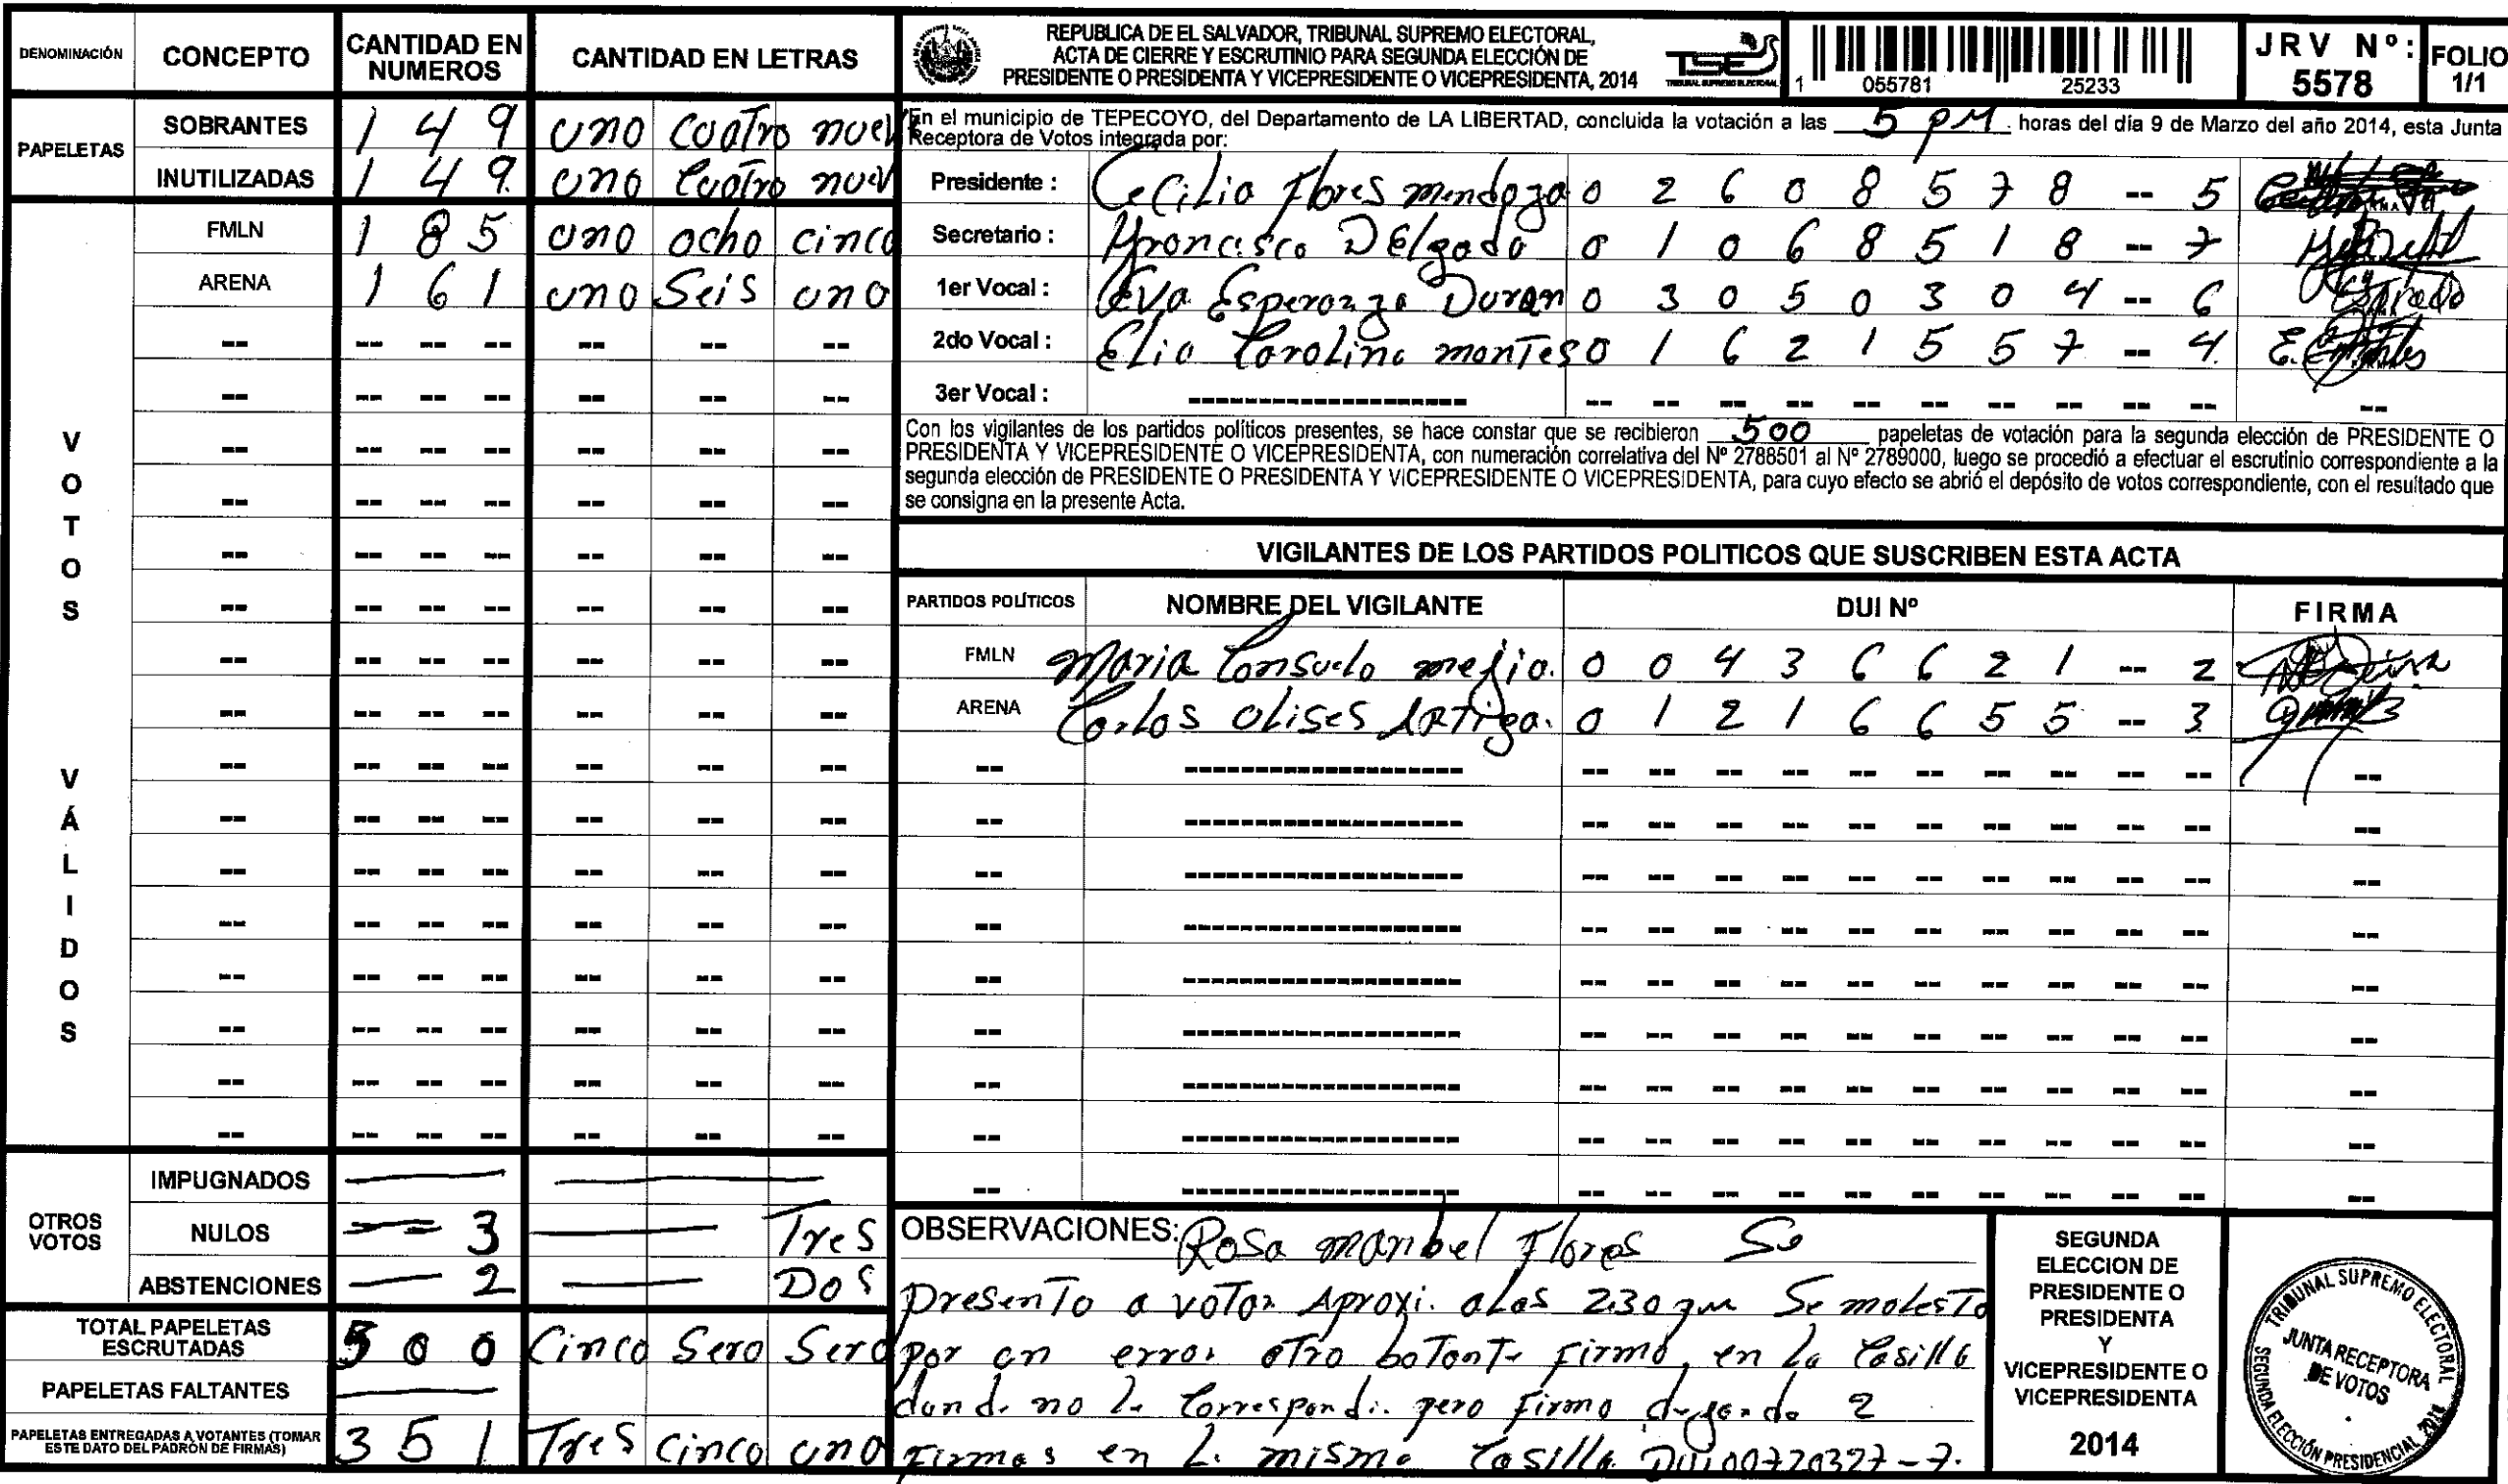 DENOMINACIÓN CONCEPTO CANTIDAD EN NUMEROS CANTIDAD EN LETRAS
PAPELETAS
SOBRANTES 1 4 9 uno cuatro nuev
INUTILIZADAS 1 4 9. uno cuatro nuev
VOTOS VÁLIDOS
FMLN 1 8 5 uno ocho cinco
ARENA 1 6 1 uno Seis uno
OTROS VOTOS
IMPUGNADOS
NULOS 3 Tres
ABSTENCIONES 2 Dos
TOTAL PAPELETAS ESCRUTADAS 5 0 0 Cinco Sero Sero
PAPELETAS FALTANTES
PAPELETAS ENTREGADAS A VOTANTES (TOMAR ESTE DATO DEL PADRÓN DE FIRMAS) 3 5 1 Tres cinco uno
REPUBLICA DE EL SALVADOR, TRIBUNAL SUPREMO ELECTORAL,
ACTA DE CIERRE Y ESCRUTINIO PARA SEGUNDA ELECCIÓN DE
PRESIDENTE O PRESIDENTA Y VICEPRESIDENTE O VICEPRESIDENTA, 2014
TSE
TRIBUNAL SUPREMO ELECTORAL
1 055781 25233
JRV Nº: 5578
FOLIO 1/1
En el municipio de TEPECOYO, del Departamento de LA LIBERTAD, concluida la votación a las 5 PM horas del día 9 de Marzo del año 2014, esta Junta
Receptora de Votos integrada por:
Presidente : Cecilia Flores mendoza 0 2 6 0 8 5 7 8 -- 5
Secretario : Francisco Delgado 0 1 0 6 8 5 1 8 -- 7
1er Vocal : Eva Esperanza Duran 0 3 0 5 0 3 0 4 -- 6
2do Vocal : Elia Carolina montes 0 1 6 2 1 5 5 7 -- 4.
3er Vocal :
Con los vigilantes de los partidos políticos presentes, se hace constar que se recibieron 500 papeletas de votación para la segunda elección de PRESIDENTE O
PRESIDENTA Y VICEPRESIDENTE O VICEPRESIDENTA, con numeración correlativa del Nº 2788501 al Nº 2789000, luego se procedió a efectuar el escrutinio correspondiente a la
segunda elección de PRESIDENTE O PRESIDENTA Y VICEPRESIDENTE O VICEPRESIDENTA, para cuyo efecto se abrió el depósito de votos correspondiente, con el resultado que
se consigna en la presente Acta.
VIGILANTES DE LOS PARTIDOS POLITICOS QUE SUSCRIBEN ESTA ACTA
PARTIDOS POLÍTICOS NOMBRE DEL VIGILANTE DUI Nº FIRMA
FMLN Maria Consuelo mejia. 0 0 4 3 6 6 2 1 -- 2
ARENA Carlos Olises Artiga. 0 1 2 1 6 6 5 5 -- 3
OBSERVACIONES: Rosa maribel Flores Se
Presento a votar Aproxi. alas 2:30 pm Se molesto
por un error otro botante firmo, en la Casilla
donde no le Correspondi. pero firmo dejando 2
Firmas en la misma Casilla DUI 00720327-7.
SEGUNDA
ELECCION DE
PRESIDENTE O
PRESIDENTA
Y
VICEPRESIDENTE O
VICEPRESIDENTA
2014
TRIBUNAL SUPREMO ELECTORAL
JUNTA RECEPTORA
DE VOTOS
SEGUNDA ELECCIÓN PRESIDENCIAL 2014